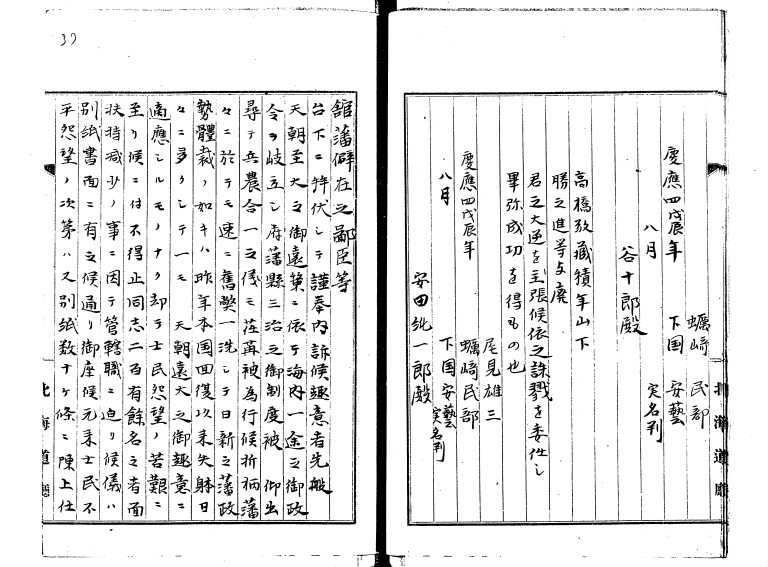 慶應四戊辰年
八月
蠣崎民部
下国安藝
実名判
谷十郎殿
高橋敬蔵積年山下
勝之進等与廃
君之大逆を主張候依之誅戮を委任し
畢弥成功を得もの也
尾見雄三
慶應四戊辰年
蠣崎民部
八月
下国安藝
実名判
安田純一郎殿
北海道廳
37
舘藩僻在之鄙臣等
台下ニ拜伏シテ謹奉内訴候趣意者先般
天朝至大之御遠策ニ依テ海内一途之御政
令ヲ岐立シ府藩縣三治之御制度被 仰出
尋テ兵農合一之儀モ荏苒被為行候折柄藩
々ニ於テモ速ニ舊弊一洗シテ日新之藩政
勢體裁ノ如キハ昨年本国回復以来失躰日
々ニ多クシテ一モ 天朝遠大之御趣意ニ
適應シルモノナク却テ士民怨望ノ苦艱ニ
至リ候ニ付不得止同志二百有餘名之者面
扶持减少ノ事ニ因テ管轄職ニ迫リ候儀ハ
別紙書面ニ有之候通リ御座候元来士民不
平怨望ノ次第ハ又別紙数十ケ條ニ陳上仕
北海道廳